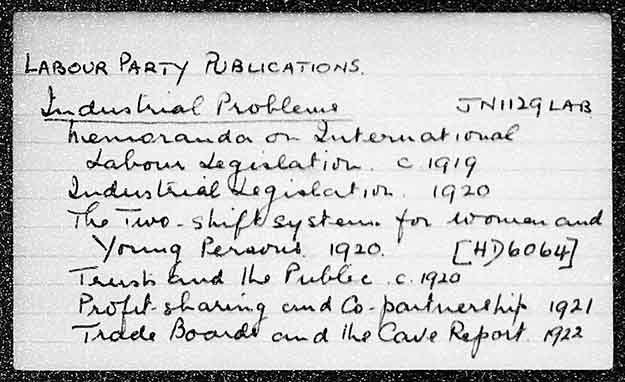 LABOUR PARTY PUBLICATIONS.
Industrial Problems JN1129 LAB
Memoranda on International
Labour Legislation. c 1919
Industrial Legislation. 1920
The Two-shift system for women and
Young Persons. 1920. [HD6064]
Trusts and the Public. c. 1920
Profit-sharing and Co-partnership 1921
Trade Boards and the Cave Report. 1922